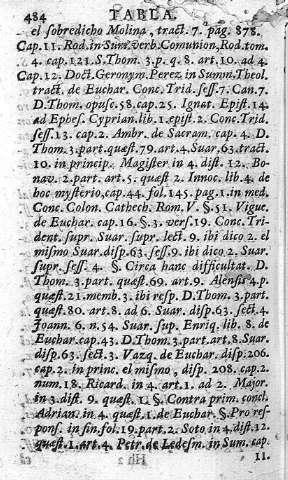 484 TABLA.
el sobredicho Molina, tract. 7. pag. 878.
Cap. 11. Rod. in Sum. verb. Comunion, Rod. tom.
4. cap. 121. S. Thom. 3. p. q. 8. art. 10. ad 4.
Cap. 12. Doct. Geronym. Perez. in Summ. Theol.
tract. de Euchar. Conc. Trid. sess. 7. Can. 7.
D. Thom. opusc. 58. cap. 25. Ignat. Epist. 14.
ad Ephes. Cyprian. lib. 1. epist. 2. Conc. Trid.
sess. 13. cap. 2. Ambr. de Sacram. cap. 4. D.
Thom. 3. part. quæst. 79. art. 4. Suar. 63. tract.
10. in princip. Magister in 4. dist. 12. Bo-
nav. 2. part. art. 5. quæst 2. Innoc. lib. 4. de
hoc mysterio, cap. 44. fol. 145. pag. 1. in med.
Conc. Colon. Cathech. Rom. V. §. 51. Vigue.
de Euchar. cap. 16. §. 3. vers. 19. Conc. Tri-
dent. supr. Suar. supr. lect. 9. ibi dico 2. el
mismo Suar. disp. 63. sess. 9. ibi dico 2. Suar.
supr. sess. 4. §. Circa hanc difficultat. D.
Thom. 3. part. quæst. 69. art. 9. Alensis 4. p.
quæst. 21. memb. 3. ibi resp. D. Thom. 3. part.
quæst. 80. art. 8. ad 6. Suar. disp. 63. sect. 4.
Joann. 6. n. 54. Suar. sup. Enriq. lib. 8. de
Euchar. cap. 43. D. Thom. 3. part. art. 8. Suar.
disp. 63. sect. 3. Vazq. de Euchar. disp. 206.
cap. 2. in princ. el mismo, disp. 208. cap. 2.
num. 18. Ricard. in 4. art. 1. ad 2. Major.
in 3. dist. 9. quæst. 1. §. Contra prim. concl.
Adrian. in 4. quæst. 1. de Euchar. §. Pro res-
pons. in fin. fol. 19. part. 2. Soto, in 4. dist. 12.
quæst. 1. art. 4. Petr. de Ledesm. in Sum. cap.
11.